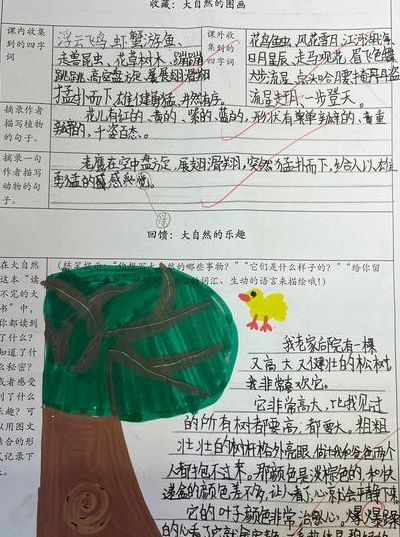 收藏：大自然的图画
课内收集到的四字词
浮云飞鸟、虾蟹游鱼、
走兽昆虫、花草树木、蹦蹦跳跳、高空盘旋、展翅滑翔
猛扑而下、雄健勇猛、井然有序。
课外收集到的四字词
花鸟鱼虫、风花雪月、江河湖海、
日月星辰、走马观花、眉飞色舞
大步流星、
流星赶月、一步登天。
摘录作者描写植物的句子。
花儿有红的、青的、紫的、蓝的，形状有单单孤孤的、重重
的、千姿百态。
摘录一句作者描写动物的句子。
老鹰在空中盘旋、展翅滑翔，突然猛扑而下，给人以雄
勇猛的感觉。
回馈：大自然的乐趣
在大自然这本“读不完的大书”中，你都读到了什么？知道了什么秘密？
乐趣？可以用图文结合的形式记录下
的哪些事物？”“它们是什么样子的？”“给你留
词汇、生动的语言来描绘哦！)
我老家后院有一棵
又高大又健壮的松树
我非常喜欢它。
它非常高大，比我见过
的所有树都要高，都要大。粗粗
壮壮的树杆格外亮眼，估计我和爸爸两个
人都抱不过来。那颜色是淡棕色的，和快
递盒的颜色差不多，让人看了，心就会平静下来
它的叶子颜色非常治愈心。爆爆躁躁
的心看了就会安静